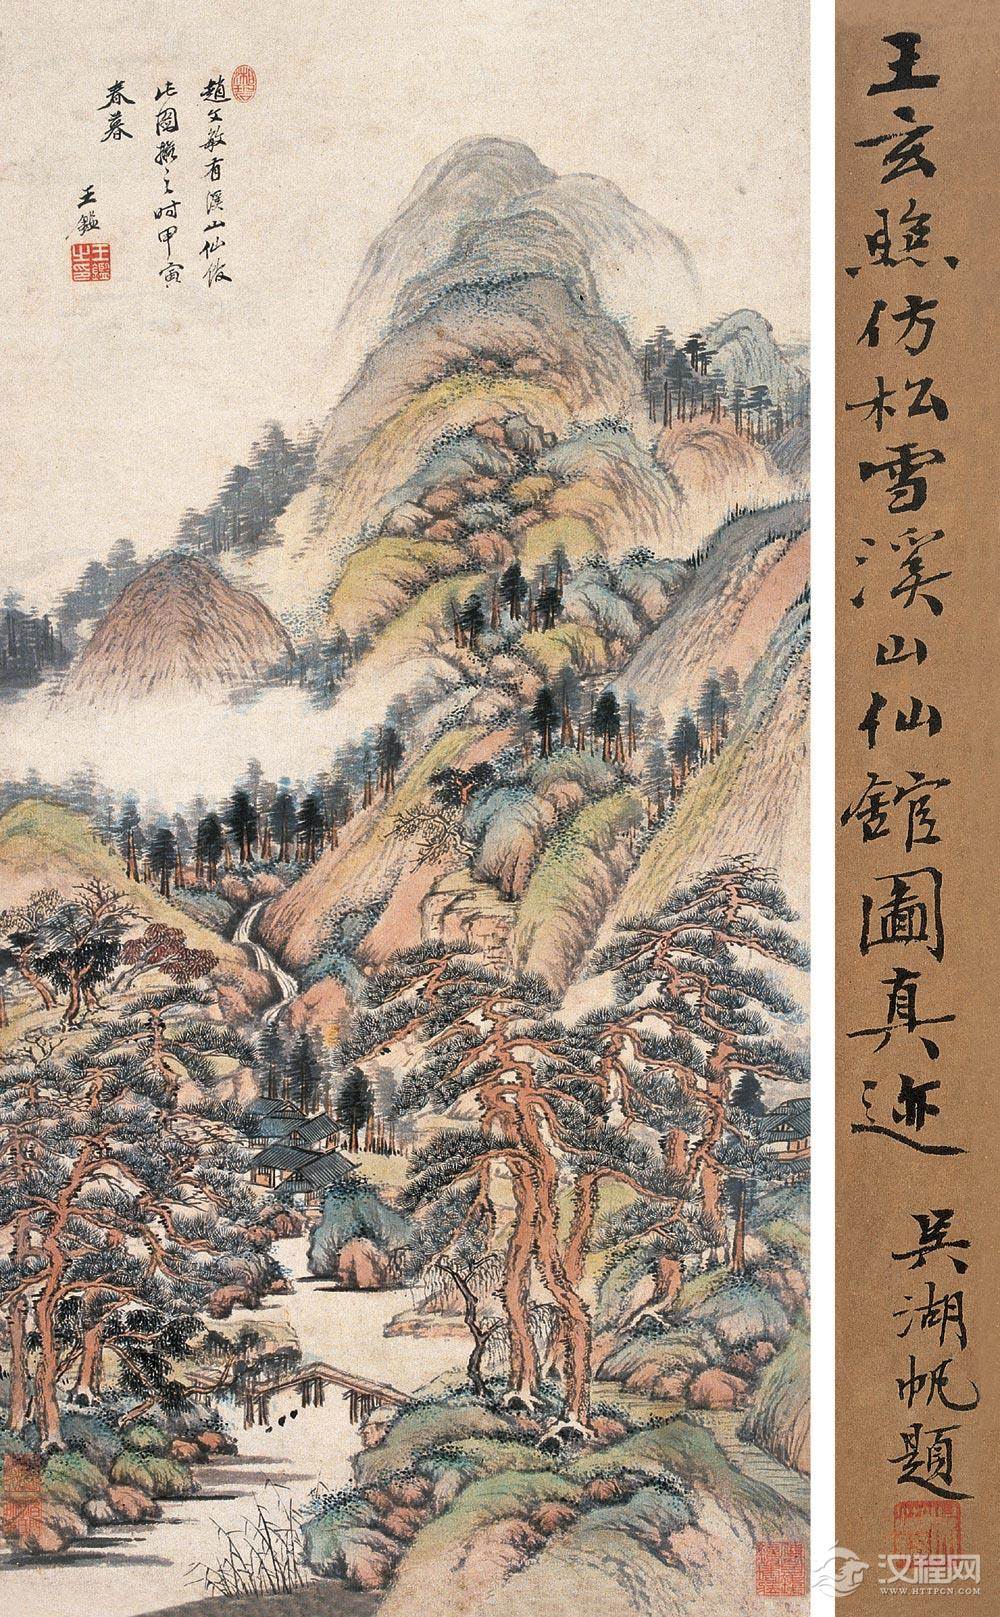 趙文敏有溪山仙館
此圖擬之时甲寅
春暮
王鑑
王鑑之印
王玄照仿松雪溪山仙舘圖真迹
吳湖帆題
汉程网
WWW.HTTPCN.COM